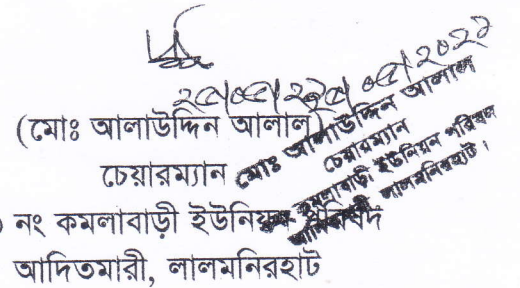 ২৫/০৫/২০২২
(মোঃ আলাউদ্দিন আলাল)
চেয়ারম্যান
নং কমলাবাড়ী ইউনিয়ন পরিষদ
আদিতমারী, লালমনিরহাট
মোঃ আলাউদ্দিন আলাল
চেয়ারম্যান
কমলাবাড়ী ইউনিয়ন পরিষদ
লালমনিরহাট।